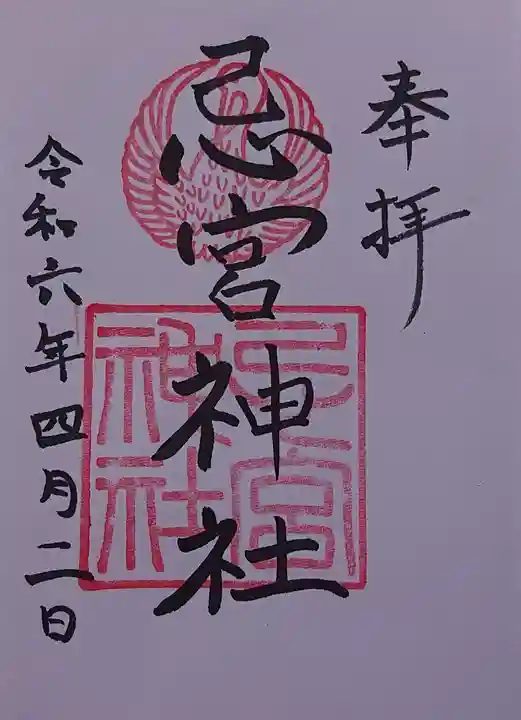 奉拝
忌宮神社
忌宮神社
令和六年四月二日